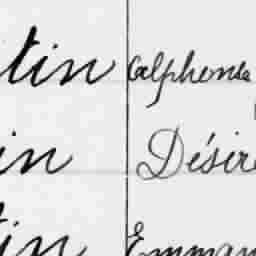 tin Calphonse
in Désire
tin Emman